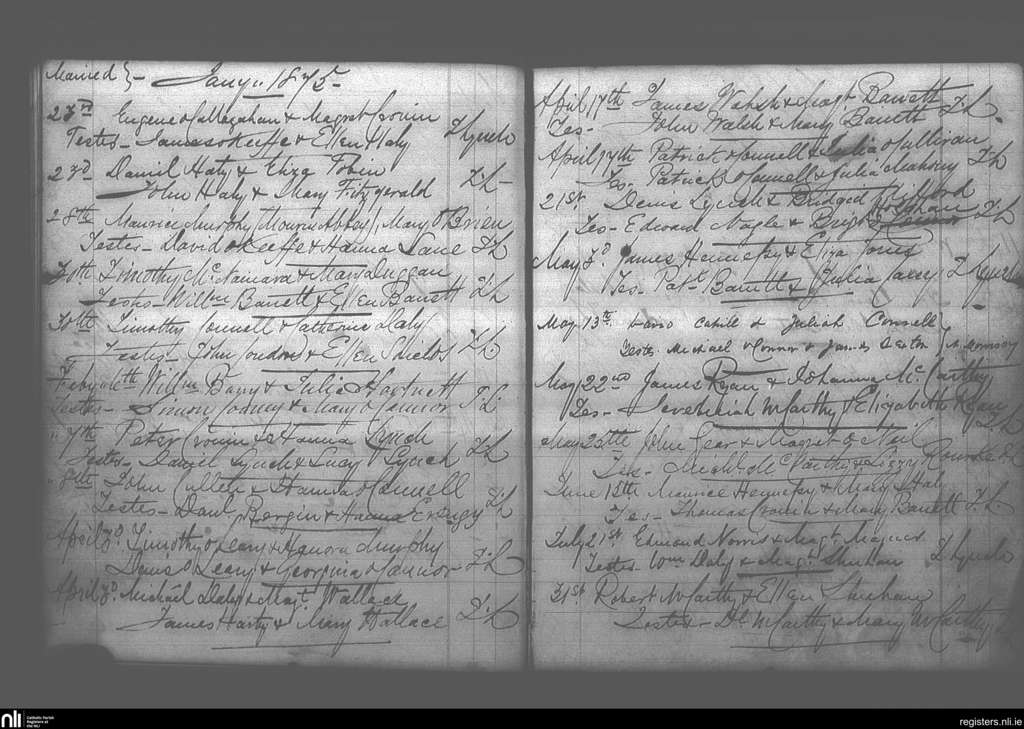 Married }- Jany. 1875-
23rd Eugene O Callaghan & Magret Cronin
Testes- James O Keeffe & Ellen Haly T Lynch
23rd Daniel Haly & Eliza Tobin
John Haly & Mary Fitzgerald T. L-
28th Maurice Murphy (Mourne Abbey) Mary O Brien
Testes- David O Keeffe & Hanna Lane T L
30th Timothy McNamara & Mary Duggan
Testes- Willm Barrett & Ellen Barrett T L
30th Timothy Connell & Catherine Daly
Testes- John & Ellen Shields T. L.
Feby 4th Willm Barry & Julia Hartnett
Testes- Simon & Mary O Connor T. L.
" 7th Peter Cronin & Hanna Lynch
Testes- Daniel Lynch & Lucy Lynch T L
" 8th John Cullen & Hanna O Connell
Testes- Danl Bergin & Hanna T. L
April 3d. Timothy O Leary & Honora Murphy
Denis O Leary & Georgina O Connor T. L
April 3d. Michael Daly & Magt. Wallace
James Harty & Mary Wallace T. L
April 17th James Walsh & Magt Barrett
Tes- John Walsh & Mary Barrett T. L.
April 17th Patrick O Connell & Julia O Sullivan
Tes- Patrick O Connell & Julia T L
21st Denis Lynch & Bridged
Tes- Edward Nagle & T L
May 3d James Hennessy & Eliza Jones
Tes- Patk Barrett & Julia Casey T Lynch
May 13th Cahill & Juliah Connell
Testes Michael O Connor & James Sexton
May 22nd James Ryan & Johanna McCarthy
Tes- Jeremiah McCarthy & Elizabeth Ryan T L
May 25th John Gear & Magret O Neil
Tes- Michl McCarthy & Lizzy Rourke T L
June 15th Maurice Hennessy & Mary Haly
Tes- Thomas Cronin & Mary Barrett T. L.
July 21st Edmond Norris & Magt. Magner
Testes Wm Daly & Magt. T Lynch
31st Robert McCarthy & Ellen Sheehan
Testes- Dl. McCarthy & Mary McCarthy
nli
Catholic Parish
Registers at
the NLI
registers.nli.ie